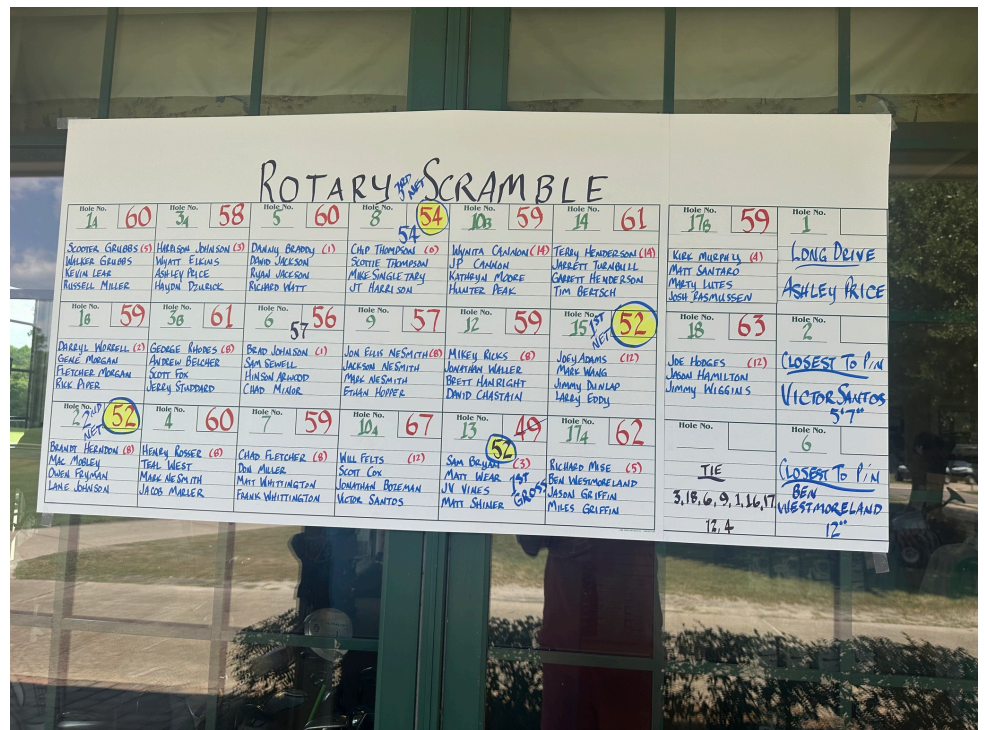 ROTARY 3RD NET SCRAMBLE
Hole No. 1A 60
SCOOTER GRUBBS (5)
WALKER GRUBBS
KEVIN LEAR
RUSSELL MILLER
Hole No. 3A 58
HARRISON JOHNSON (3)
WYATT ELKINS
ASHLEY PRICE
HAYDN DZURICK
Hole No. 5 60
DANNY BRADDY (1)
DAVID JACKSON
RYAN JACKSON
RICHARD WATT
Hole No. 8 54
54
CHIP THOMPSON (0)
SCOTTIE THOMPSON
MIKE SINGLETARY
JT HARRISON
Hole No. 10B 59
WYNITA CANNON (14)
JP CANNON
KATHRYN MOORE
HUNTER PEAK
Hole No. 14 61
TERRY HENDERSON (14)
JARRETT TURNBULL
GARRETT HENDERSON
TIM BERTSCH
Hole No. 17B 59
KIRK MURPHY (4)
MATT SANTARO
MARTY LUTES
JOSH RASMUSSEN
Hole No. 1
LONG DRIVE
ASHLEY PRICE
Hole No. 1B 59
DARRYL WORRELL (2)
GENE MORGAN
FLETCHER MORGAN
RICK PIPER
Hole No. 3B 61
GEORGE RHODES (8)
ANDREW BELCHER
SCOTT FOX
JERRY STUDDARD
Hole No. 6 57 56
BRAD JOHNSON (1)
SAM SEWELL
HINSON ARWOOD
CHAD MINOR
Hole No. 9 57
JON ELLIS NESMITH (8)
JACKSON NESMITH
MARK NESMITH
ETHAN HOPPER
Hole No. 12 59
MIKEY RICKS (8)
JONATHAN WALLER
BRETT HANRIGHT
DAVID CHASTAIN
Hole No. 15 1ST NET 52
JOEY ADAMS (12)
MARK WANG
JIMMY DUNLAP
LARRY EDDY
Hole No. 18 63
JOE HODGES (12)
JASON HAMILTON
JIMMY WIGGINS
Hole No. 2
CLOSEST TO PIN
VICTOR SANTOS
5'7"
Hole No. 2 2ND NET 52
BRANDT HERNDON (8)
MAC MOBLEY
OWEN FRYMAN
LANE JOHNSON
Hole No. 4 60
HENRY ROSSER (8)
TEAL WEST
MARK NESMITH
JACOB MARLER
Hole No. 7 59
CHAD FLETCHER (8)
DON MILLER
MATT WHITTINGTON
FRANK WHITTINGTON
Hole No. 10A 67
WILL FELTS (12)
SCOTT COX
JONATHAN BOZEMAN
VICTOR SANTOS
Hole No. 13 49
52
SAM BRYAN (3)
MATT WEAR 1ST
JV VINES GROSS
MATT SHINER
Hole No. 17A 62
RICHARD MISE (5)
BEN WESTMORELAND
JASON GRIFFIN
MILES GRIFFIN
Hole No.
TIE
3, 18, 6, 9, 1, 16, 17
12, 4
Hole No. 6
CLOSEST TO PIN
BEN
WESTMORELAND
12"